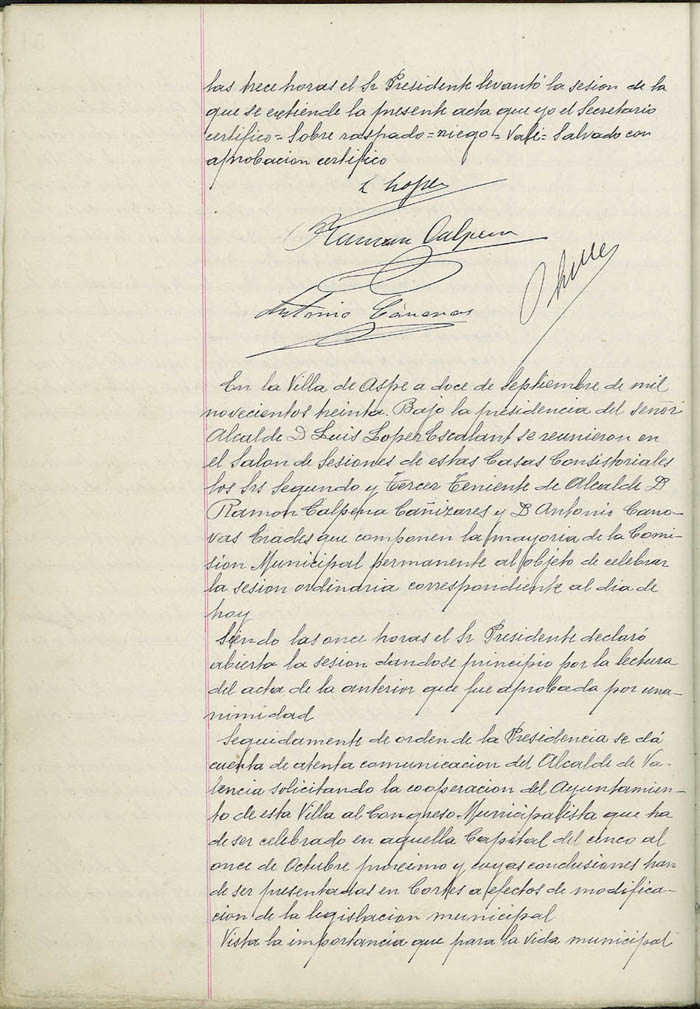 las trece horas el Sr Presidente levantó la sesion de la
que se extiende la presente acta que yo el Secretario
certifico = Sobre raspado = riego = Vale = Salvado con
aprobacion certifico
L Lopez
Ramon Calpena
Antonio Cánovas
En la Villa de Aspe a doce de Septiembre de mil
novecientos treinta. Bajo la presidencia del señor
Alcalde D Luis Lopez Escalant se reunieron en
el Salon de Sesiones de estas Casas Consistoriales
los Srs Segundo y Tercer Teniente de Alcalde D
Ramon Calpena Cañizares y D Antonio Cano-
vas Erades que componen la mayoria de la Comi-
sion Municipal permanente al objeto de celebrar
la sesion ordinaria correspondiente al dia de
hoy
Siendo las once horas el Sr Presidente declaró
abierta la sesion dandose principio por la lectura
del acta de la anterior que fue aprobada por una-
nimidad
Seguidamente de orden de la Presidencia se dá
cuenta de atenta comunicacion del Alcalde de Va-
lencia solicitando la cooperacion del Ayuntamien-
to de esta Villa al Congreso Municipalista que ha
de ser celebrado en aquella Capital del cinco al
once de Octubre proximo y cuyas conclusiones han
de ser presentadas en Cortes a efectos de modifica-
cion de la legislacion municipal
Vista la importancia que para la vida municipal